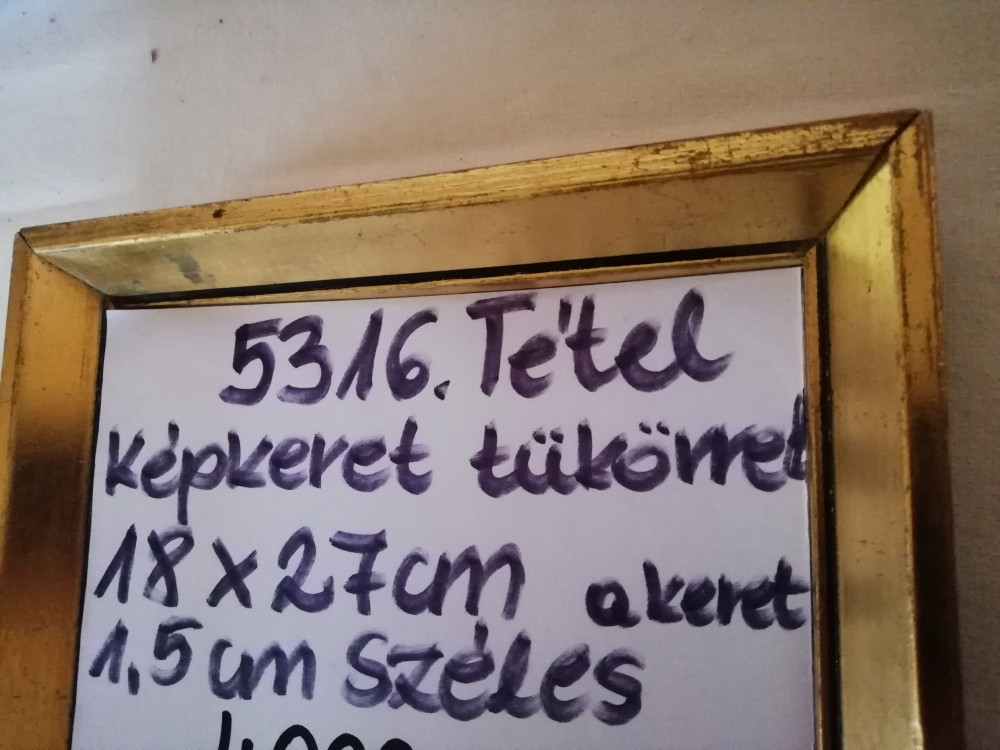 5316. Tétel
képkeret tükörrel
18 x 27cm a keret
1,5 cm széles